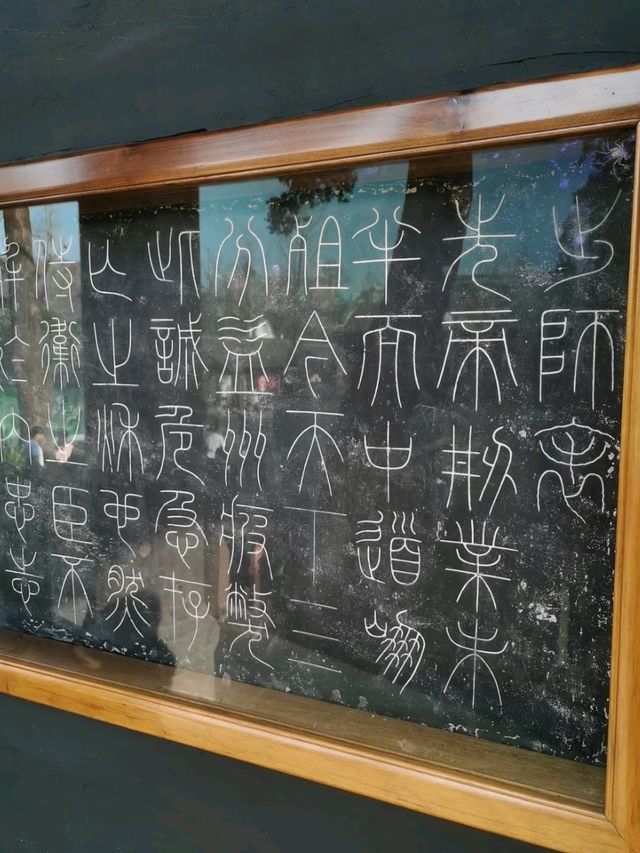 出師表
先帝刱業未
半而中道崩
殂今天下三
分益州疲敝
此誠危急存
亡之秋也然
侍衛之臣不
懈於內忠志